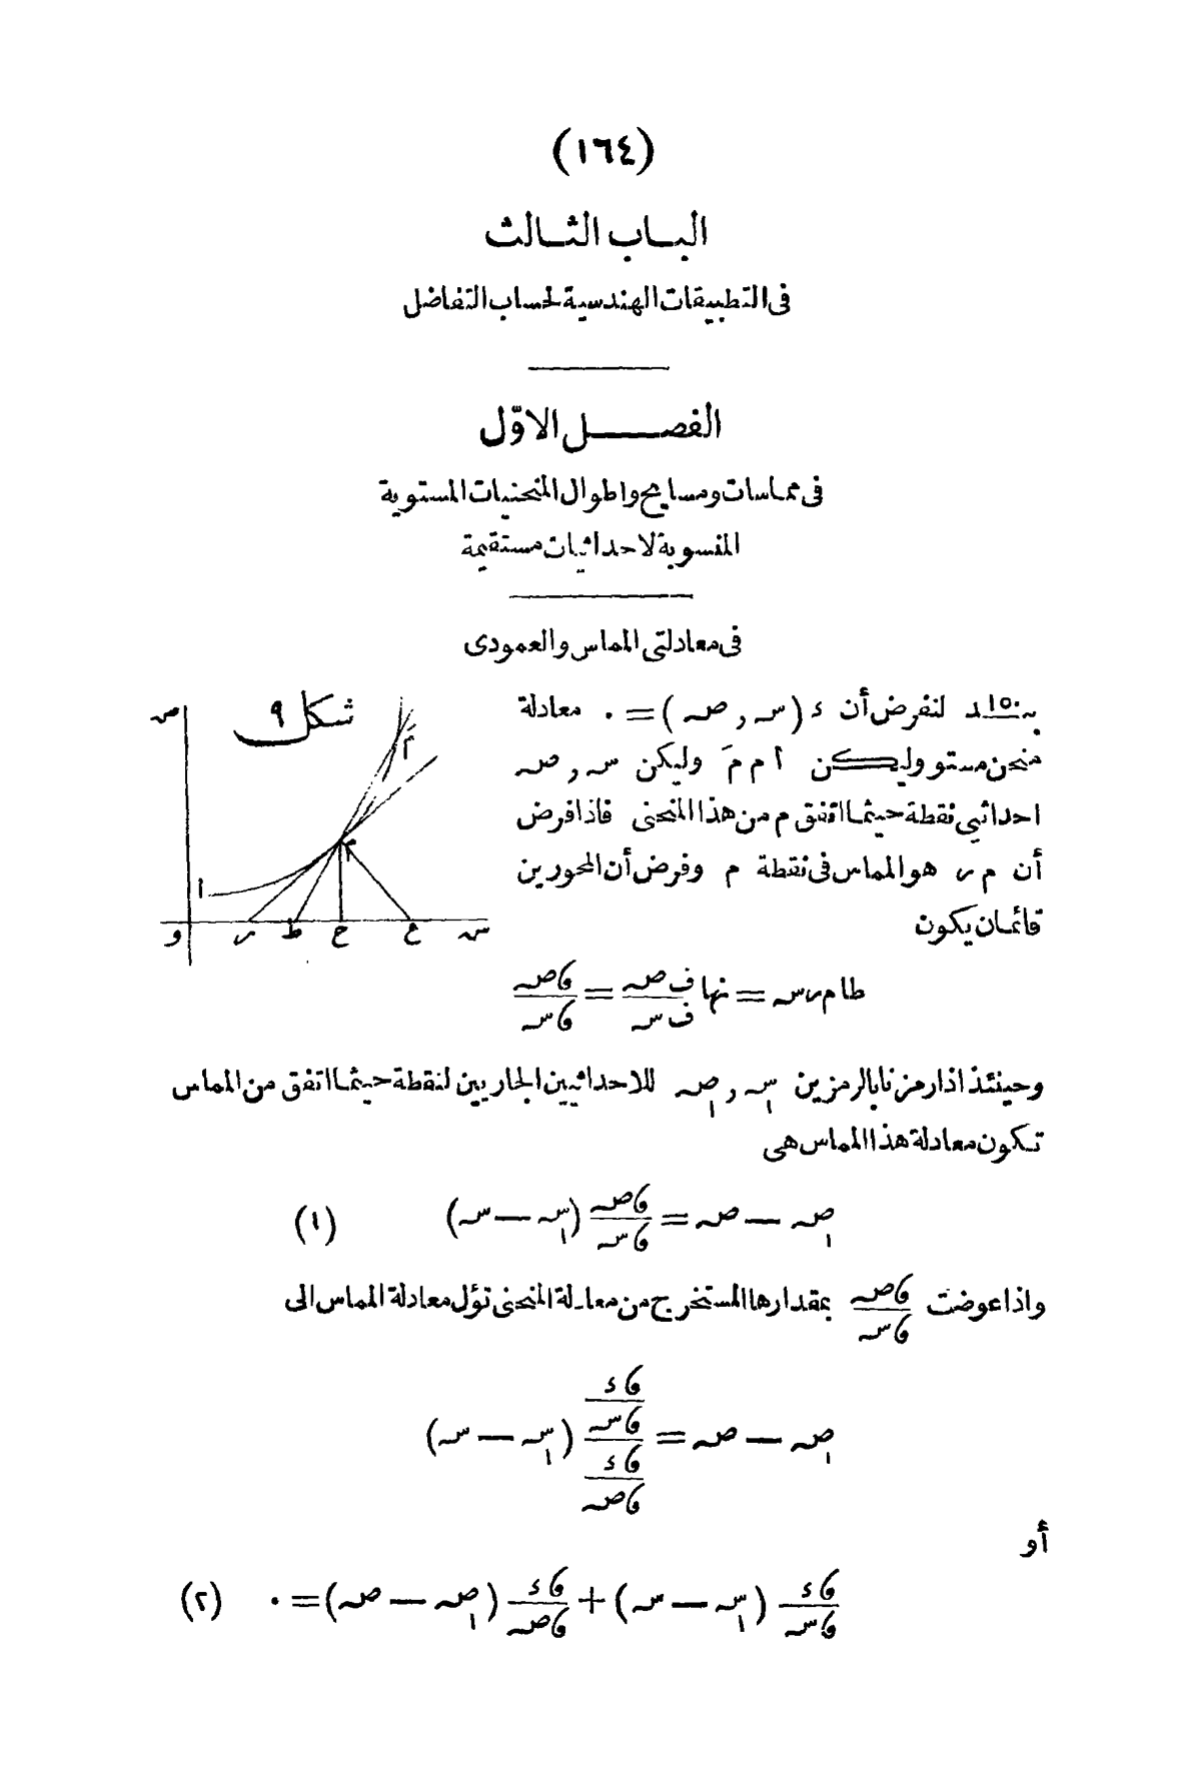 (١٦٤)
الباب الثالث
فى التطبيقات الهندسية لحساب التفاضل
الفصل الاوّل
فى مماسات ومسايح واطوال المنحنيات المستوية
المنسوبة لاحداثيات مستقيمة
فى معادلتى المماس والعمودى
شكل ٩
صـ
اَ
م
ا
و ر ط ح ع سـ
بنـ١٥٠ـد لنفرض أن د (سـ , صـ) = ٠ معادلة
منحن مستو وليكن ا م مَ وليكن سـ , صـ
احداثيى نقطة حيثما اتفق م من هذا المنحنى فاذا فرض
أن م ر هو المماس فى نقطة م وفرض أن المحورين
قائمان يكون
طا م ر سـ = نها ف صـ / ف سـ = ءصـ / ءسـ
وحينئذ اذا رمزنا بالرمزين سـ١ , صـ١ للاحداثيين الجاريين لنقطة حيثما اتفق من المماس
تكون معادلة هذا المماس هى
صـ١ — صـ = ءصـ / ءسـ (سـ١ — سـ) (١)
واذا عوضت ءصـ / ءسـ بمقدارها المستخرج من معادلة المنحنى تؤل معادلة المماس الى
صـ١ — صـ = (ءد / ءسـ) / (ءد / ءصـ) (سـ١ — سـ)
أو
ءد / ءسـ (سـ١ — سـ) + ءد / ءصـ (صـ١ — صـ) = ٠ (٢)